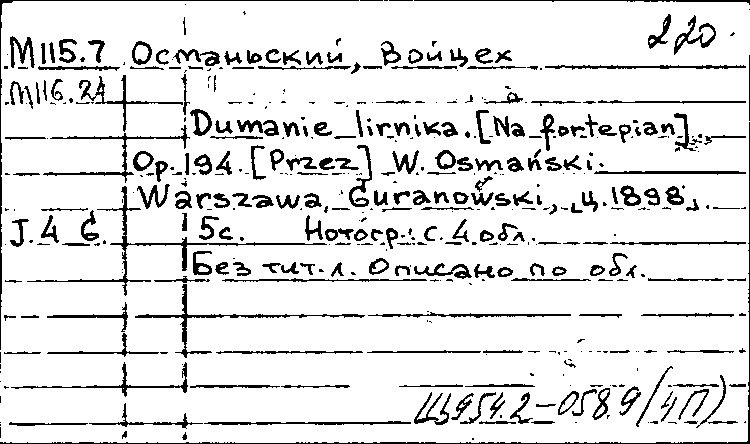 220.
М115.7 Османьский, Войцех
М116.24
Dumanie lirnika. [Na fortepian].
Op. 194. [Przez] W. Osmański.
Warszawa, Guranowski, „ц. 1898„.
J. 4 G. 5 с. Нотогр.: с. 4 обл.
Без тит. л. Описано по обл.
Ць954.2-058.9/(4П)